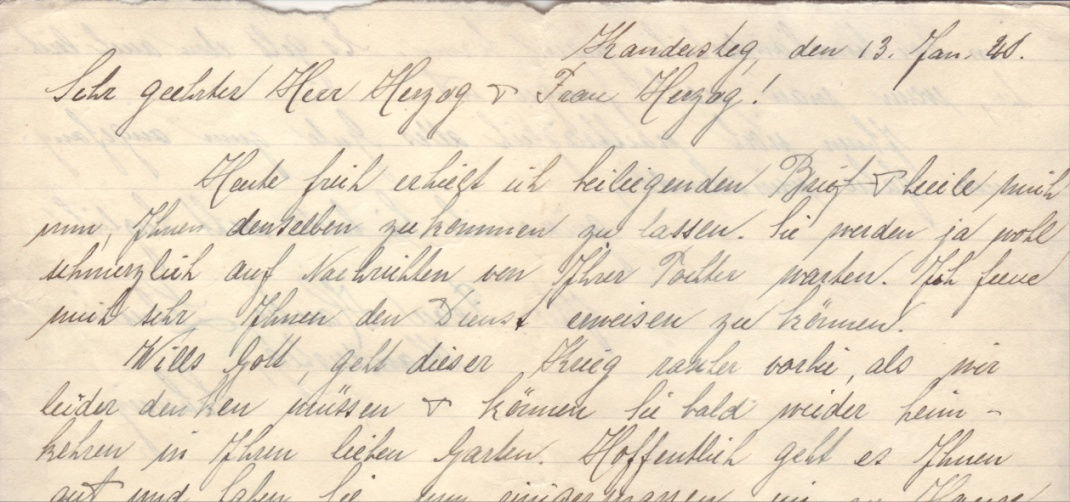 Kandersteg, den 13. Jan. 41.
Sehr geehrter Herr Herzog & Frau Herzog!
Heute früh erhielt ich beiliegenden Brief & beeile mich
nun, Ihnen denselben zukommen zu lassen. Sie werden ja wohl
schmerzlich auf Nachrichten von Ihrer Tochter warten. Ich freue
mich sehr Ihnen den Dienst erweisen zu können.
Wills Gott, geht dieser Krieg rascher vorbei, als wir
leider denken müssen & können Sie bald wieder heim-
kehren in Ihren lieben Garten. Hoffentlich geht es Ihnen
gut und haben Sie nun einigermassen